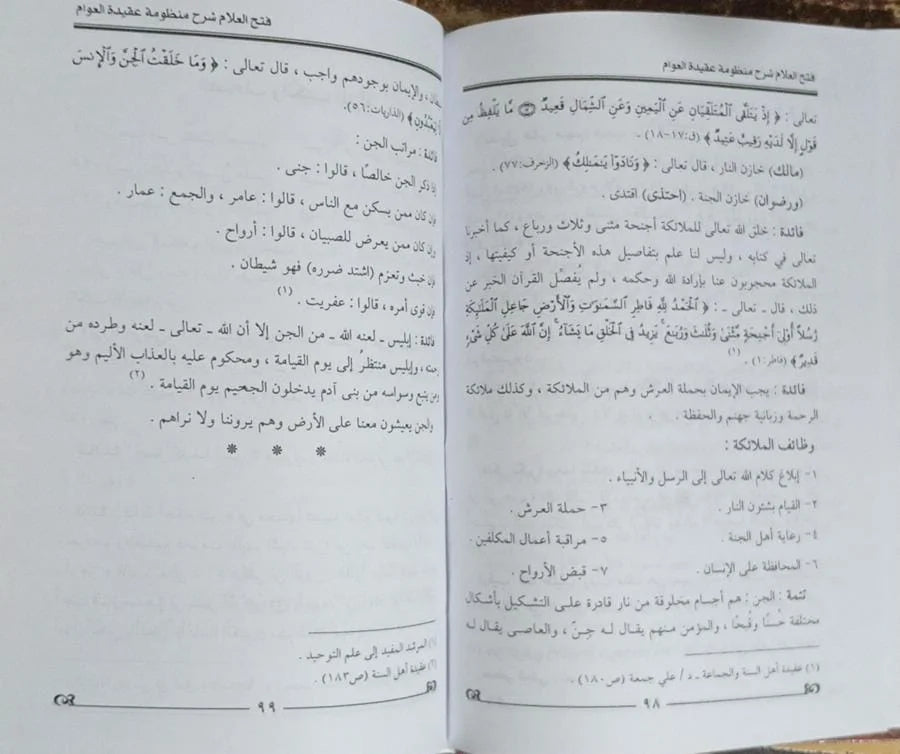 فتح العلام شرح منظومة عقيدة العوام
تعالى : ﴿ إِذْ يَتَلَقَّى الْمُتَلَقِّيَانِ عَنِ الْيَمِينِ وَعَنِ الشِّمَالِ قَعِيدٌ ۝ مَا يَلْفِظُ مِن
قَوْلٍ إِلَّا لَدَيْهِ رَقِيبٌ عَتِيدٌ ﴾ (ق:١٧-١٨) .
(مالك) خازن النار ، قال تعالى : ﴿ وَنَادَوْا يَمَالِكُ ﴾ (الزخرف:٧٧) .
(ورضوان) خازن الجنة . (احتذى) اقتدى .
فائدة : خلق الله تعالى للملائكة أجنحة مثنى وثلاث ورباع ، كما أخبرنا
تعالى في كتابه ، وليس لنا علم بتفاصيل هذه الأجنحة أو كيفيتها ، إذ
الملائكة محجوبون عنا بإرادة الله وحكمه ، ولم يُفصِّل القرآن الخبر عن
ذلك ، قال ـ تعالى ـ : ﴿ الْحَمْدُ لِلَّهِ فَاطِرِ السَّمَاوَاتِ وَالْأَرْضِ جَاعِلِ الْمَلَائِكَةِ
رُسُلًا أُولِي أَجْنِحَةٍ مَثْنَى وَثُلَاثَ وَرُبَاعَ يَزِيدُ فِي الْخَلْقِ مَا يَشَاءُ إِنَّ اللَّهَ عَلَى كُلِّ شَيْءٍ
قَدِيرٌ ﴾ (فاطر:١) . (١)
فائدة : يجب الإيمان بحملة العرش وهم من الملائكة ، وكذلك ملائكة
الرحمة وزبانية جهنم والحفظة .
وظائف الملائكة :
١- إبلاغ كلام الله تعالى إلى الرسل والأنبياء .
٢- القيام بشئون النار . ٣- حملة العرش .
٤- رعاية أهل الجنة . ٥- مراقبة أعمال المكلفين .
٦- المحافظة على الإنسان . ٧- قبض الأرواح .
تتمة : الجن : هم أجسام مخلوقة من نار قادرة على التشكيل بأشكال
مختلفة حُسنًا وقُبحًا ، والمؤمن منهم يقال له جِنّ ، والعاصي يقال له
(١) عقيدة أهل السنة والجماعة ـ د / علي جمعة (ص ١٨٠) .
٩٨
فتح العلام شرح منظومة عقيدة العوام
، والإيمان بوجودهم واجب ، قال تعالى : ﴿ وَمَا خَلَقْتُ الْجِنَّ وَالْإِنسَ
(الذاريات:٥٦).
فائدة : مراتب الجن :
إذا ذكر الجن خالصًا ، قالوا : جنى .
فإن كان ممن يسكن مع الناس ، قالوا : عامر ، والجمع : عمار .
وإن كان ممن يعرض للصبيان ، قالوا : أرواح .
فإن خبث وتعزم (اشتد ضرره) فهو شيطان .
فإن قوى أمره ، قالوا : عفريت . (١)
فائدة : إبليس ـ لعنه الله ـ من الجن إلا أن الله ـ تعالى ـ لعنه وطرده من
، وإبليس منتظرٌ إلى يوم القيامة ، ومحكوم عليه بالعذاب الأليم وهو
ومن يتبع وسواسه من بنى آدم يدخلون الجحيم يوم القيامة . (٢)
والجن يعيشون معنا على الأرض وهم يروننا ولا نراهم .
* * *
(١) المرشد المفيد إلى علم التوحيد .
(٢) عقيدة أهل السنة (ص١٨٣) .
٩٩